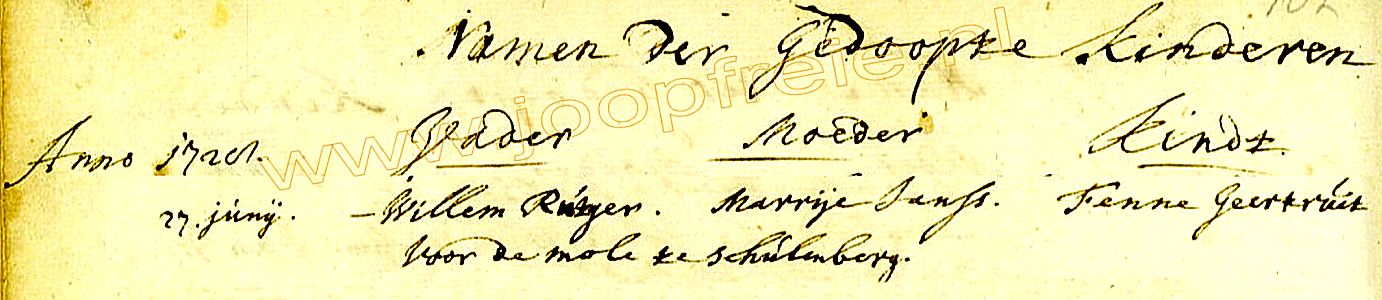 Namen der Gedoopte Kinderen
Anno Vader Moeder Kindt.
27. junij. – Willem Rutger. Marrije Janss. Fenne Geertruit
voor de mole te schulenberg.
www.joopfreie.nl